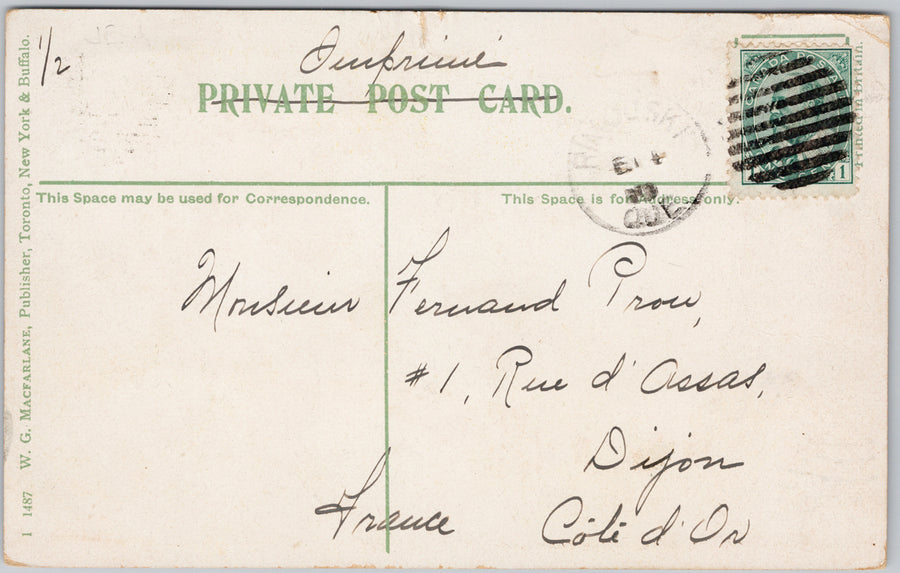 1/2
Imprimé
PRIVATE POST CARD.
CANADA POSTAGE
1
RIMOUSKI
QUE
Printed in Britain.
This Space may be used for Correspondence.
This Space is for Address only.
Monsieur Fernand Prou,
#1, Rue d'Assas,
Dijon
France Côté d'Or
1 1487 W. G. MACFARLANE, Publisher, Toronto, New York & Buffalo.